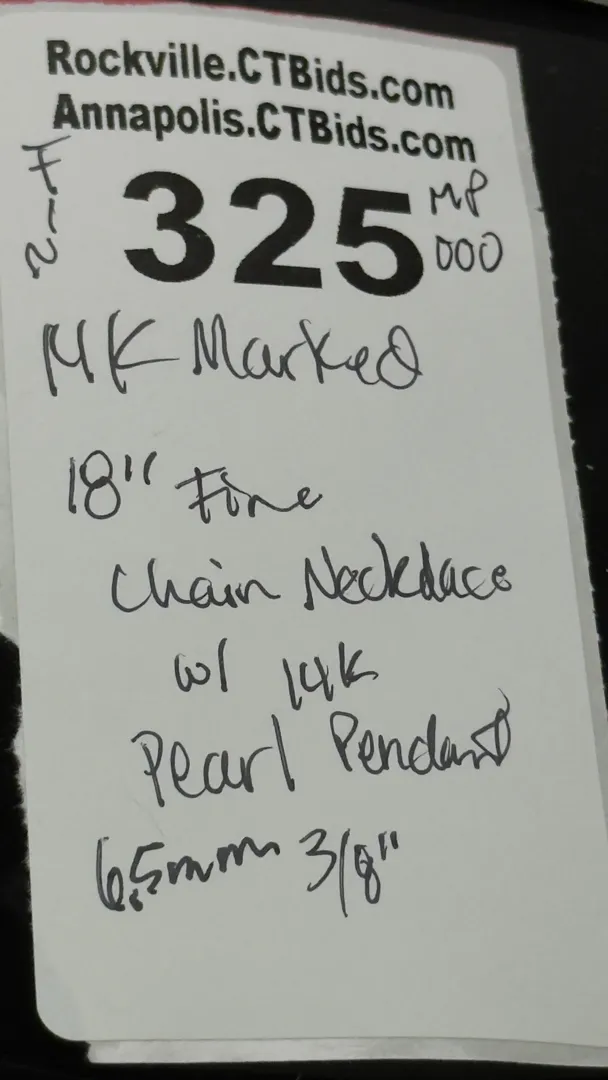 Rockville.CTBids.com
Annapolis.CTBids.com
325
MP
000
14K Marked
18" Fine
Chain Necklace
w/ 14K
Pearl Pendant
6.5mm 3/8"